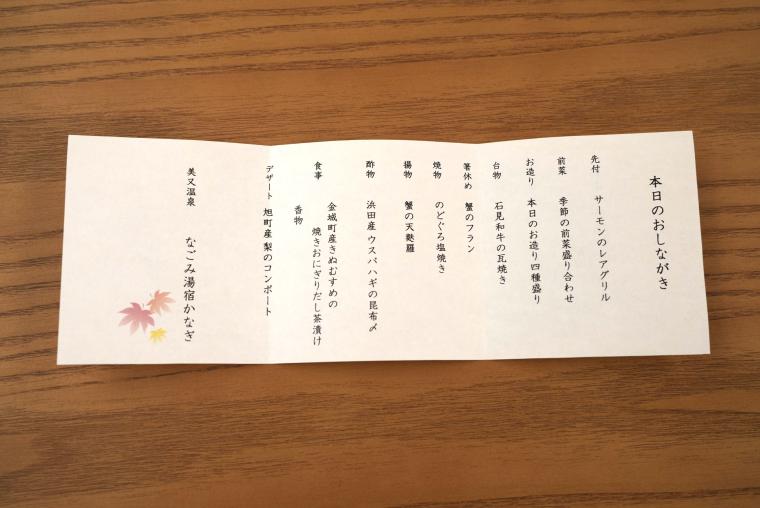 本日のおしながき
先付 サーモンのレアグリル
前菜 季節の前菜盛り合わせ
お造り 本日のお造り四種盛り
台物 石見和牛の瓦焼き
箸休め 蟹のフラン
焼物 のどぐろ塩焼き
揚物 蟹の天麩羅
酢物 浜田産ウスバハギの昆布〆
食事 金城町産きぬむすめの
焼きおにぎりだし茶漬け
香物
デザート 旭町産梨のコンポート
美又温泉 なごみ湯宿かなぎ